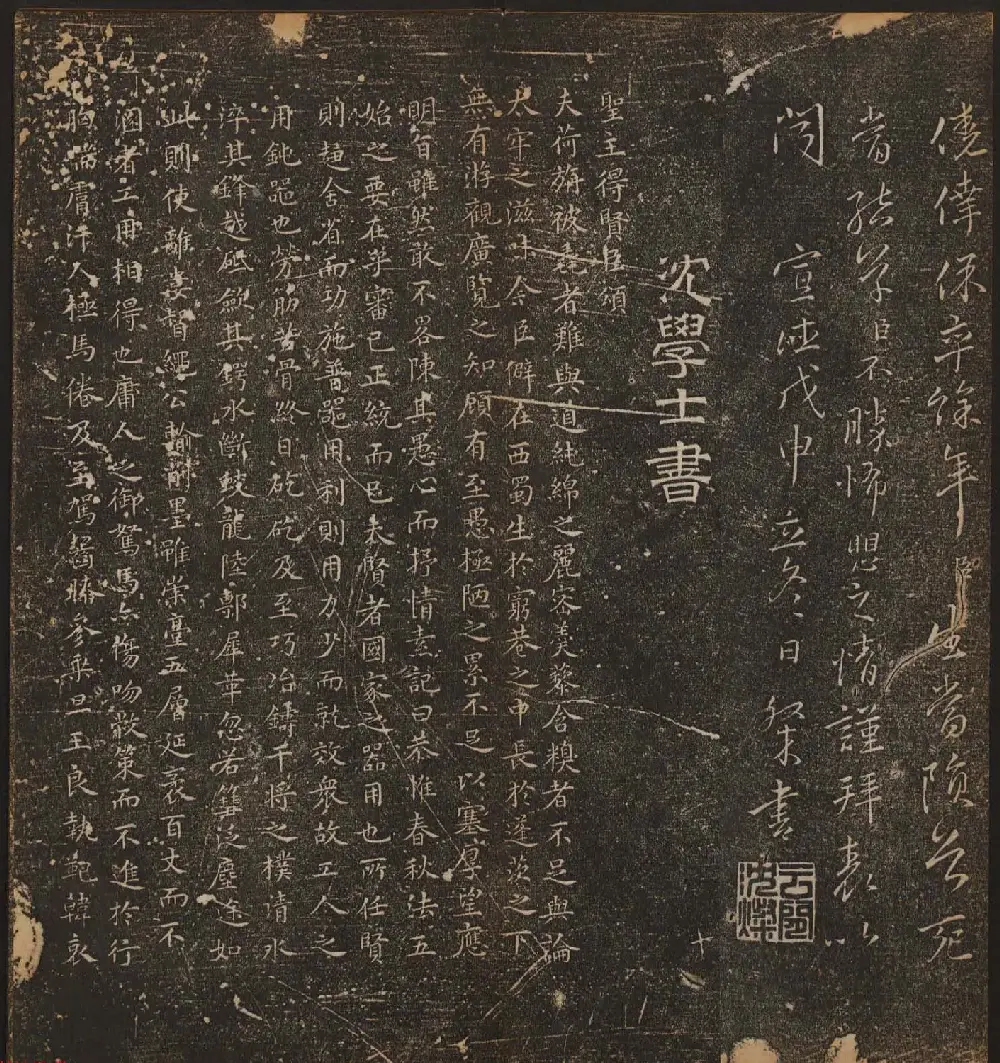 僥倖保卒餘年臣生當隕首死
當結草臣不勝怖懼之情謹拜表以
聞 宣德戊申立冬日 粲書
雲間沈粲
沈學士書
聖主得賢臣頌
夫荷旃被毳者難與道純綿之麗密羹藜含糗者不足與論
太牢之滋味今臣僻在西蜀生於窮巷之中長於蓬茨之下
無有游觀廣覽之知顧有至愚極陋之累不足以塞厚望應
明旨雖然敢不畧陳其愚心而抒情素記曰恭惟春秋法五
始之要在乎審己正統而已夫賢者國家之器用也所任賢
則趨舍省而功施普器用利則用力少而就效衆故工人之
用鈍器也勞筋苦骨終日矻矻及至巧冶鑄干將之樸清水
淬其鋒越砥斂其鍔水斷蛟龍陸剸犀革忽若篲泛塵途如
此則使離婁督繩公輸削墨雖崇臺五層延袤百丈而不
溷者工用相得也庸人之御駑馬亦傷吻敝策而不進於行
胸喘膚汗人極馬倦及至駕齧膝參乘旦王良執靶韓哀
十